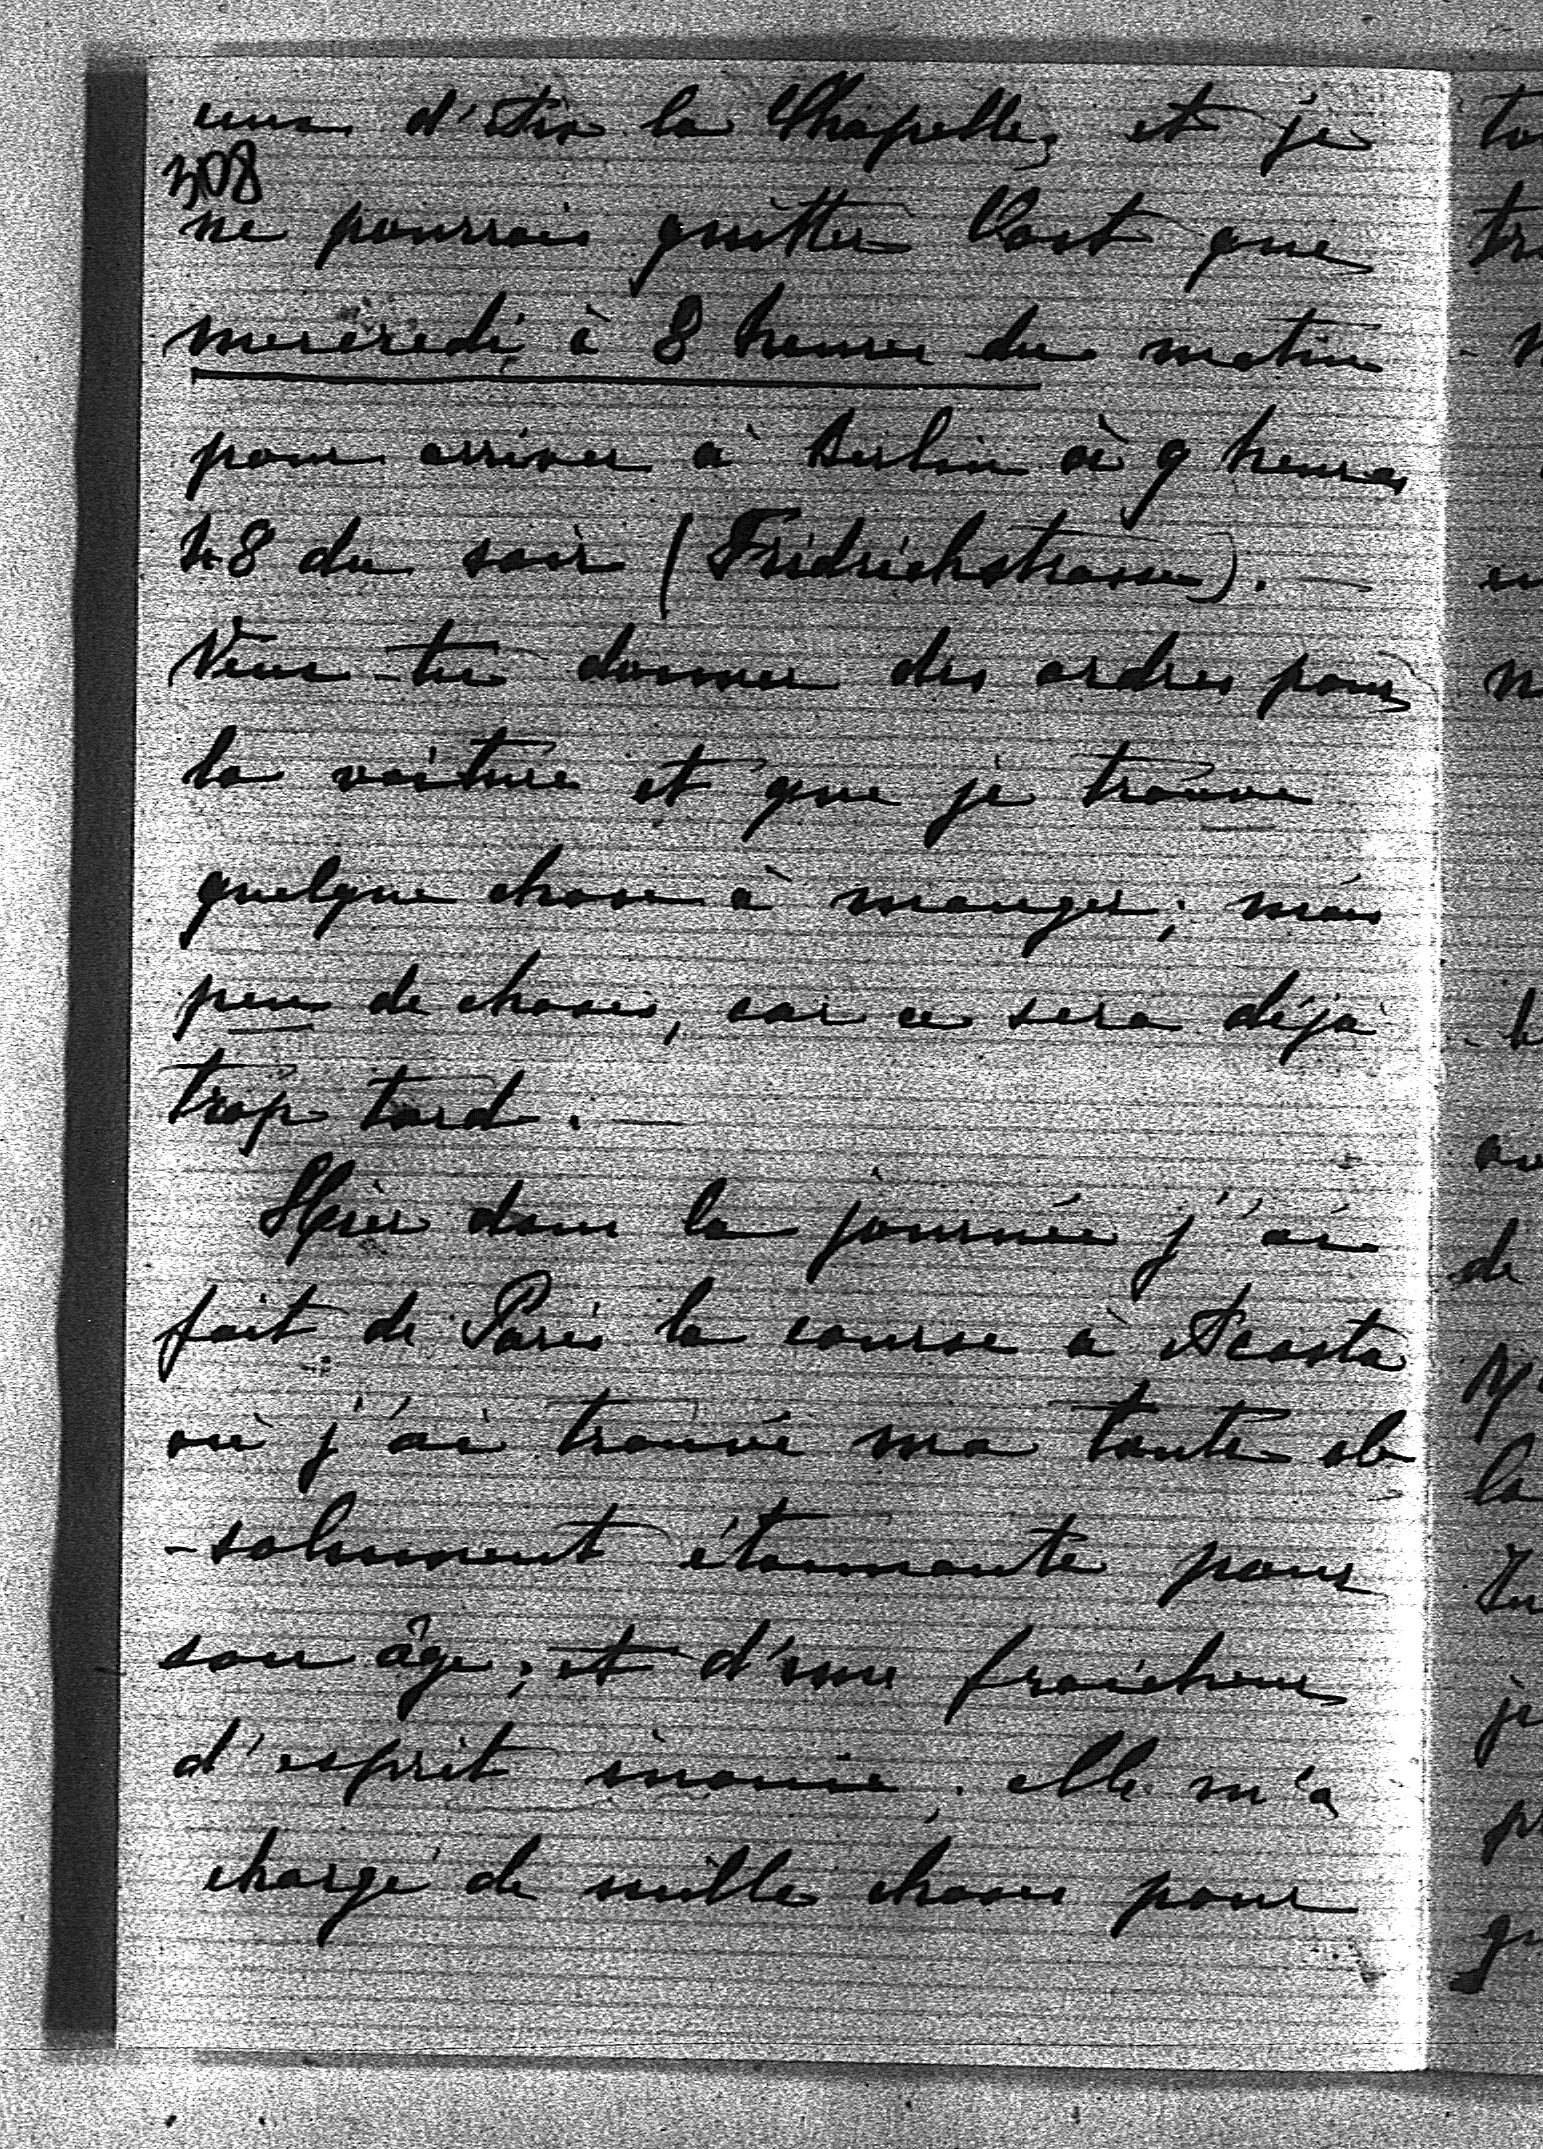 d'Aix la Chapelle, et je
308
ne pourrais quitter l'ost que
mercredi à 8 heures du matin
pour arriver à Berlin à 9 heures
48 du soir (Fridrichstrasse). —
Veux-tu donner des ordres pour
la voiture et que je trouve
quelque chose à manger; mais
peu de choses, car ce sera déjà
trop tard. —
Hier dans la journée j'ai
fait de Paris la course à Acosta
où j'ai trouvé ma tante ab
-solument étonnante pour
son âge, et d'une fraicheur
d'esprit inouie, elle m'a
chargé de mille choses pour